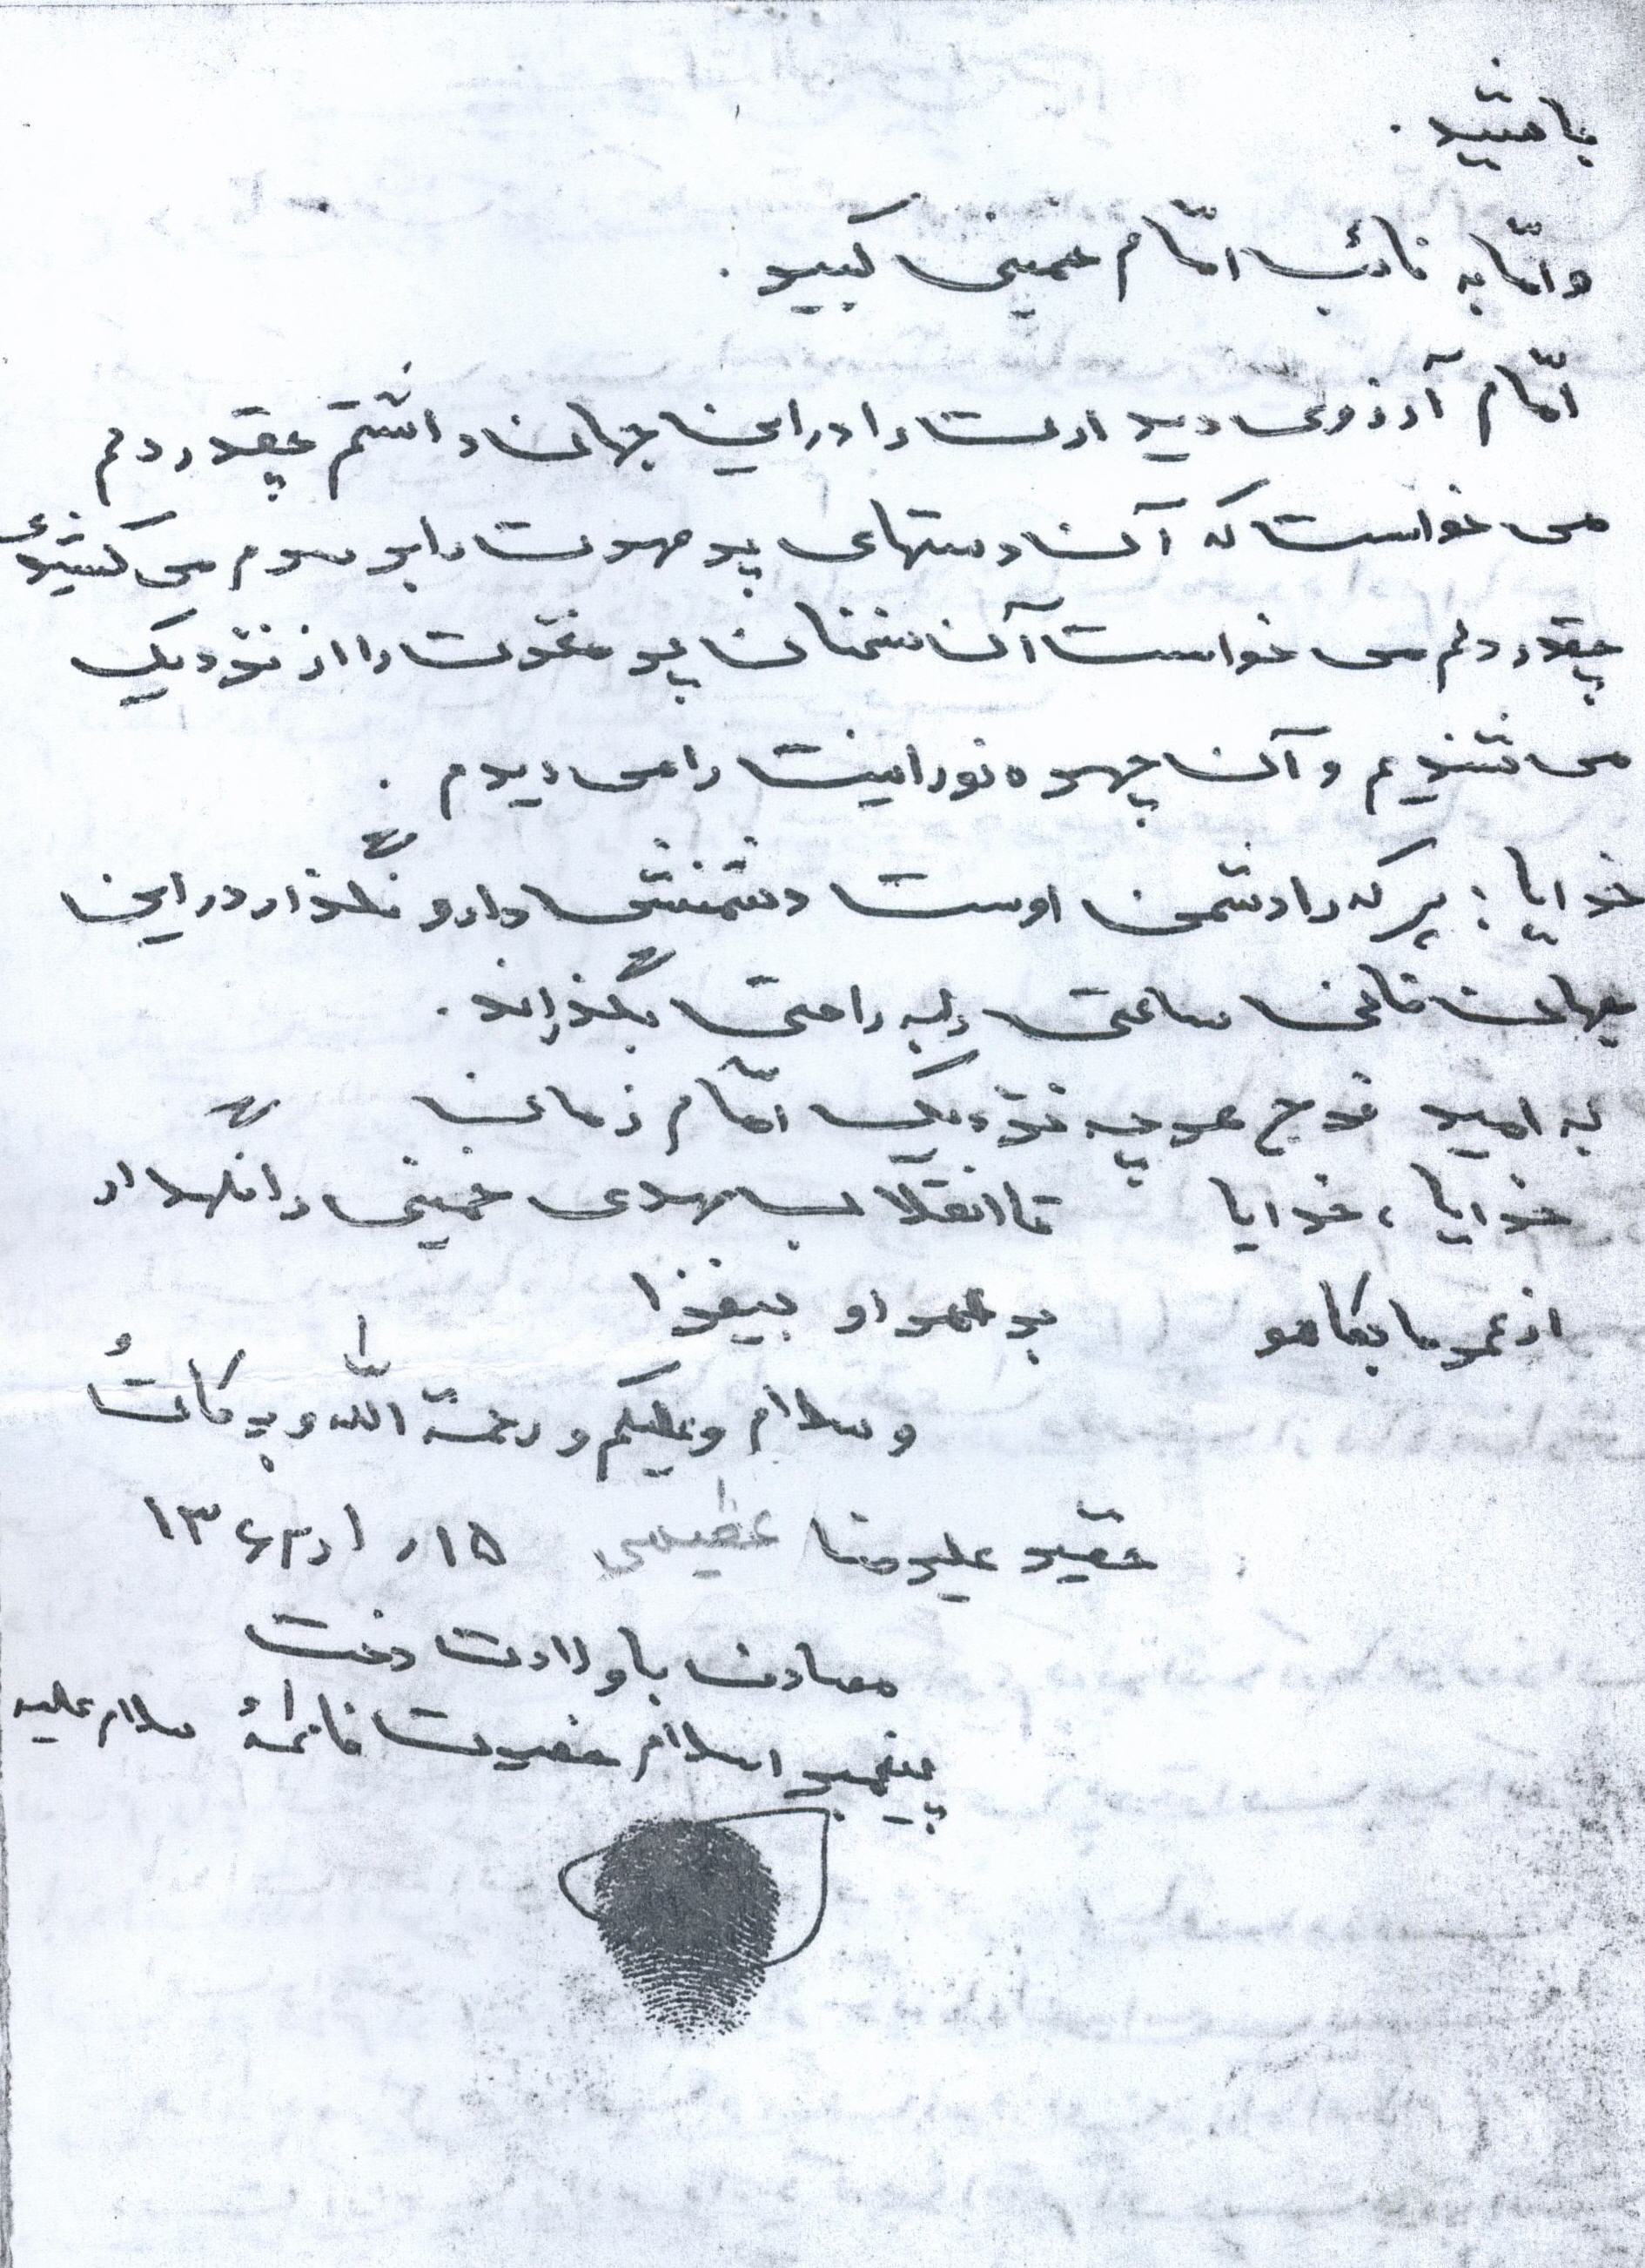 باشید.
و امّا به نائب امّام خمینی کبیر.
امّام آرزوی دیدارت را در این جهان داشتم چقدر دلم
می خواست که آن دستهای پر مهرت را بر سرم می کشیدی
چقدر دلم می خواست آن سخنان پر مغزت را از نزدیک
می شنیدم و آن چهره نورانیت را می دیدم.
خدایا: هر که را دشمن اوست دشمنش دار و نگذار در این
جهان فانی ساعتی به راحتی بگذراند.
به امید فرج هر چه نزدیک امّام زمان
خدایا، خدایا تا انقلاب مهدی خمینی را نگهدار
از عمر ما بکاهو بر عمر او بیفزا
و سلام و علیکم و رحمة الله و برکاتهُ
حقیر علیرضا عظیمی ۱۵ر۱ر
مصادف با ولادت دخت
پیغمبر اسلام حضرت فاطمهٔ سلام علیه